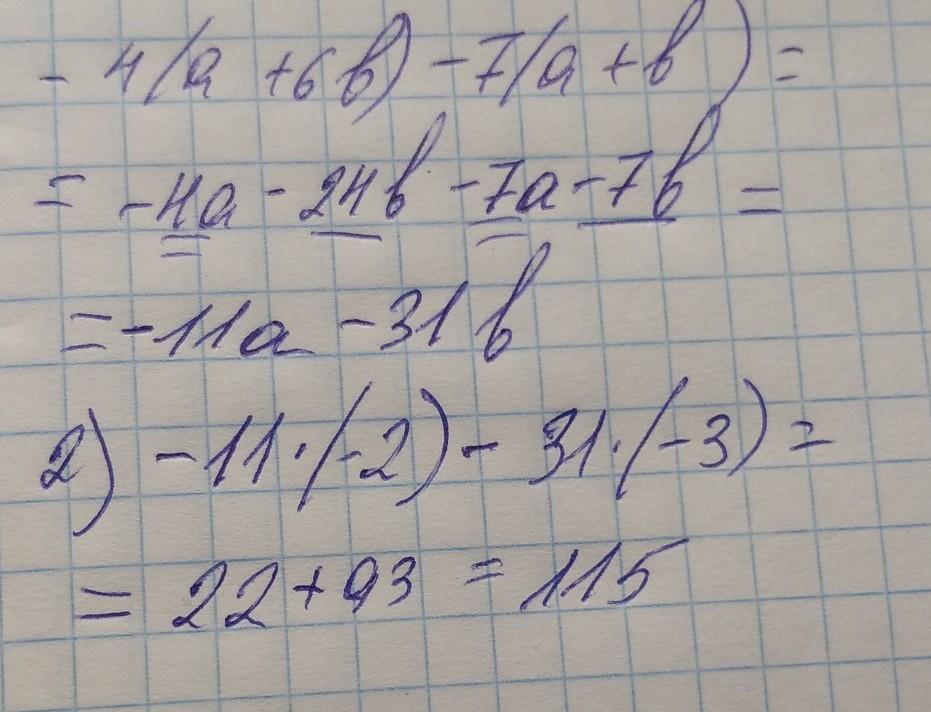 - 4(a + 6b) - 7(a + b) =
= -4a - 24b - 7a - 7b =
= -11a - 31b
2) -11·(-2) - 31·(-3) =
= 22 + 93 = 115